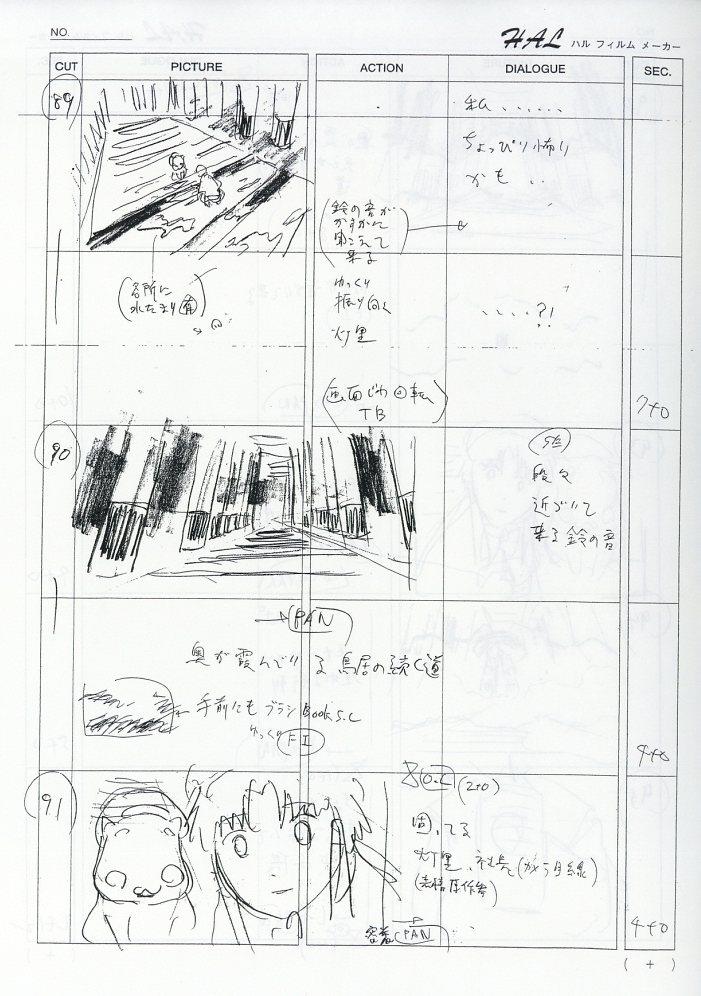 NO.
HAL ハル フィルム メーカー
CUT PICTURE ACTION DIALOGUE SEC.
89
私、、、、、、
ちょっぴり怖い
かも、、
(鈴の音が
かすかに
聞こえて
来る)
(各所に
水たまり有)
ゆっくり
振り向く
灯里
、、、、?!
(画面じわ回転
TB)
7+0
90
SE
段々
近づいて
来る鈴の音
→PAN
奥が霞んでいる鳥居の続く道
手前にもブラシBook S.C
ゆっくりF.I
4+0
91
O.L (2+0)
固ってる
灯里、社長
PAN
4+0
( + )